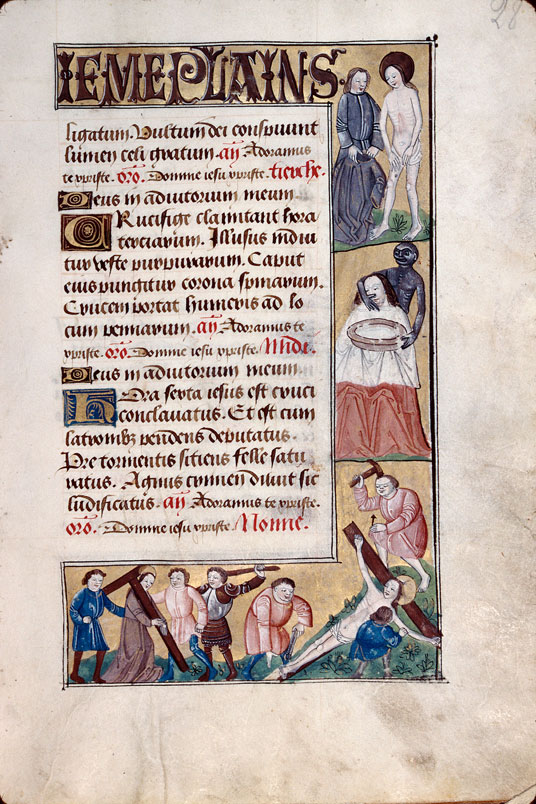 28
IEMEPLAINS
ligatum. Vultum dei conspuunt
lumen celi gratum. añ Adoramus
te xpriste. oro. Domine iesu xpriste. tierche.
Deus in adiutorium meum.
CRucifige clamitant hora
terciarum. Illusus induitur
tur veste purpurarum. Caput
eius pungitur corona spinarum.
Crucem portat humeris ad lo
cum penarum. añ Adoramus te
xpriste. oro. Domine iesu xpriste. Midi.
Deus in adiutorium meum.
HOra sexta iesus est cruci
conclavatus. Et est cum
latronibz pendens deputatus.
Pre tormentis sitiens felle satu
ratus. Agnus crimen diluit sic
ludificatus. añ Adoramus te xpriste.
oro. Domine iesu xpriste. Nonne.